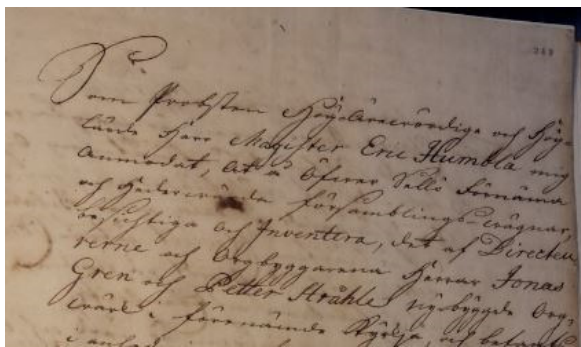 Som Probsten Högläreværdige och Hög-
lärde Herr Magister Eric Humbla mig
Anmodat, at å Öfwer Sellö Förnäma
och Hedervärda Församblings-wägnar,
besichtiga och Inventera, det af Directeu-
rerne och Orgbyggarena Herrar Jonas
Gren och Petter Stråhle nybyggde Org-
wärk i förenämde Kyrkja, och befant
i anled